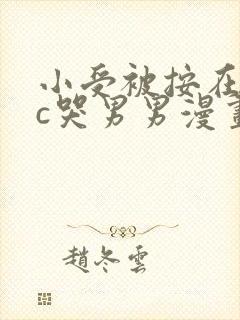 小受被按在
c哭男男漫畫
趙冬雲